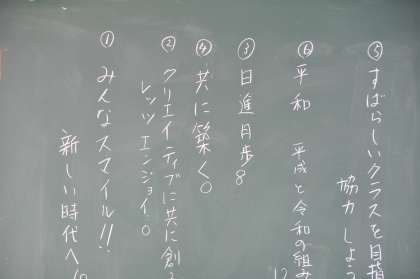 ⑤ すばらしいクラスを目指
協力しよう
⑥ 平和 平成と令和の組み
③ 日進月歩 8
④ 共に築く 0
② クリエイティブに共に創る
レッツエンジョイ! 0
① みんなスマイル!!
新しい時代へ